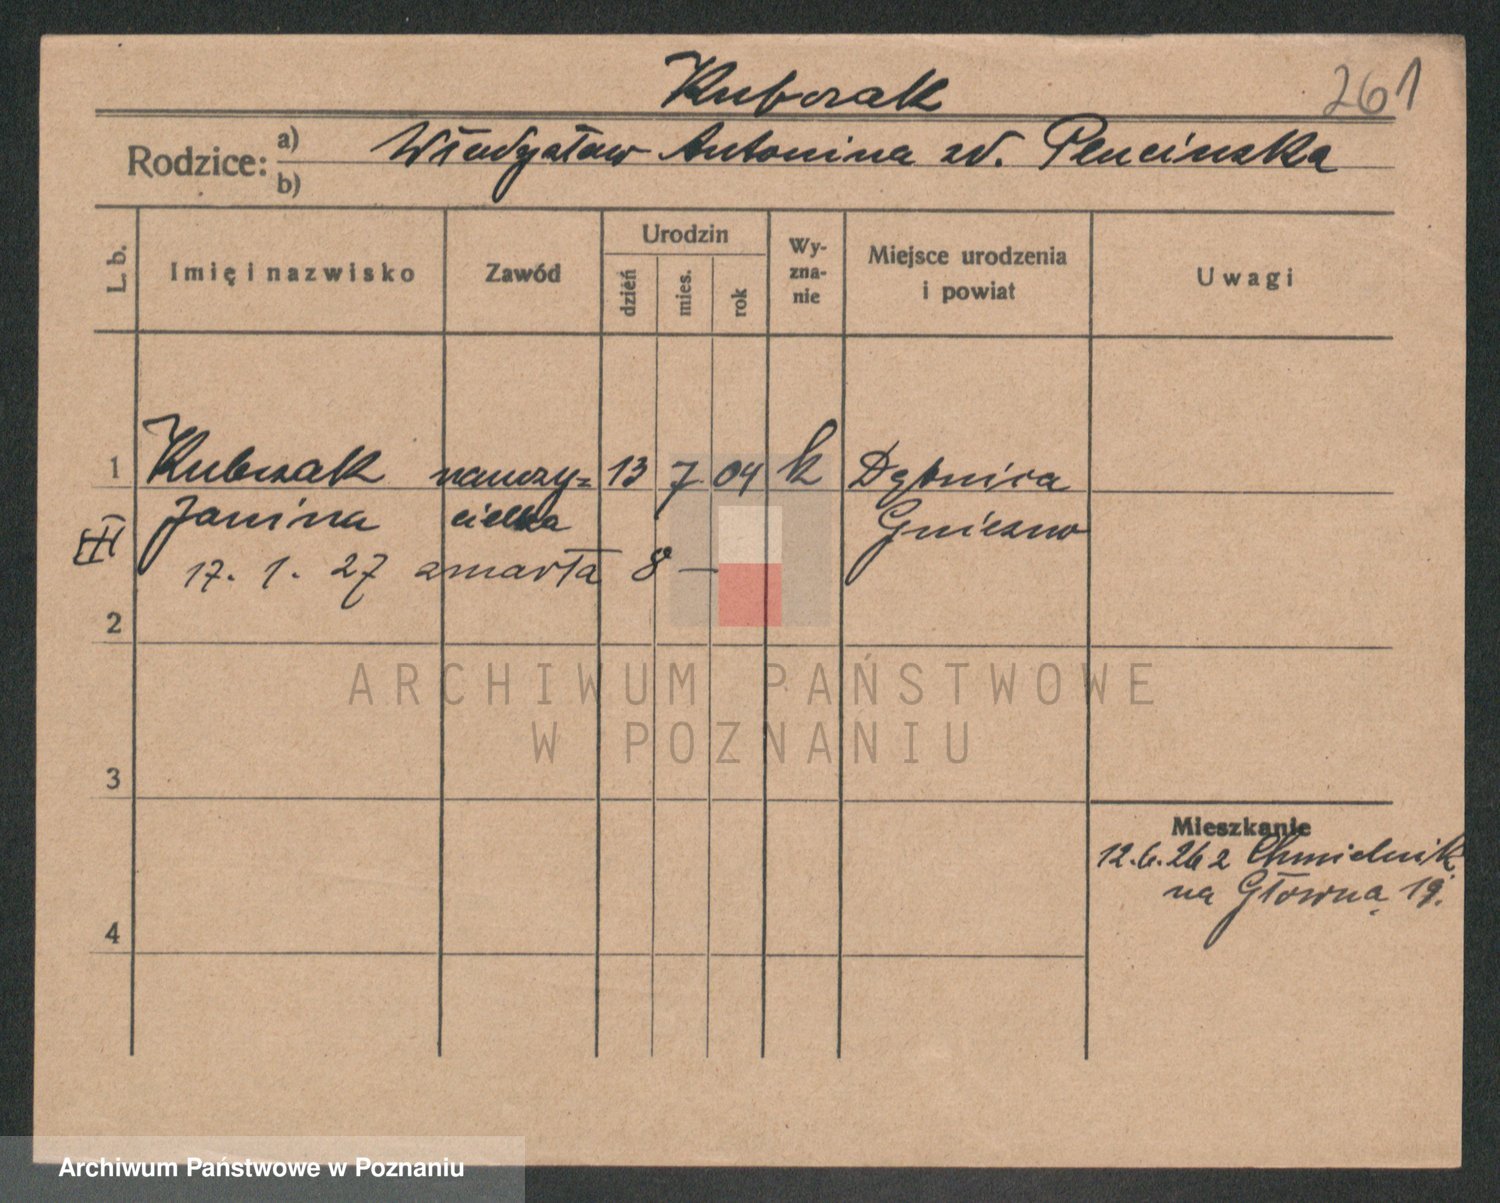 Kubczak
261
Rodzice: a) Władysław Antonina zd. Plucinska
b)
L. b. Imię i nazwisko Zawód Urodzin dzień mies. rok Wy-zna-nie Miejsce urodzenia i powiat Uwagi
1 Kubczak nauczy= 13 7 04 k Dębnica
Janina cielka Gniezno
17. 1. 27 zmarła 8 —
2
ARCHIWUM PAŃSTWOWE
W POZNANIU
3
Mieszkanie
12.6.26 z Chmielnik
na Główną 19.
4
Archiwum Państwowe w Poznaniu